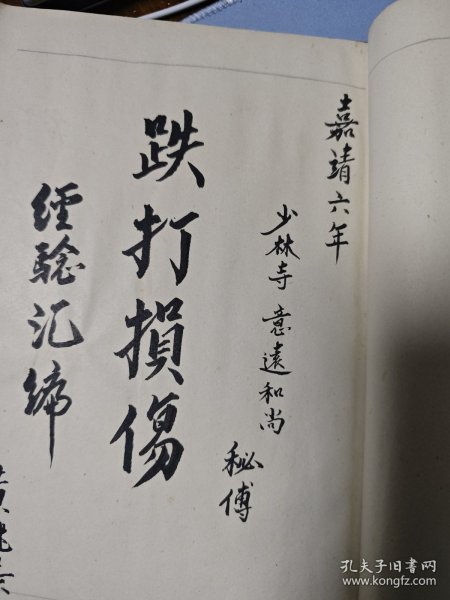 嘉靖六年
少林寺意遠和尚
秘傅
跌打損傷
經驗汇締
孔夫子旧书网
www.kongfz.com